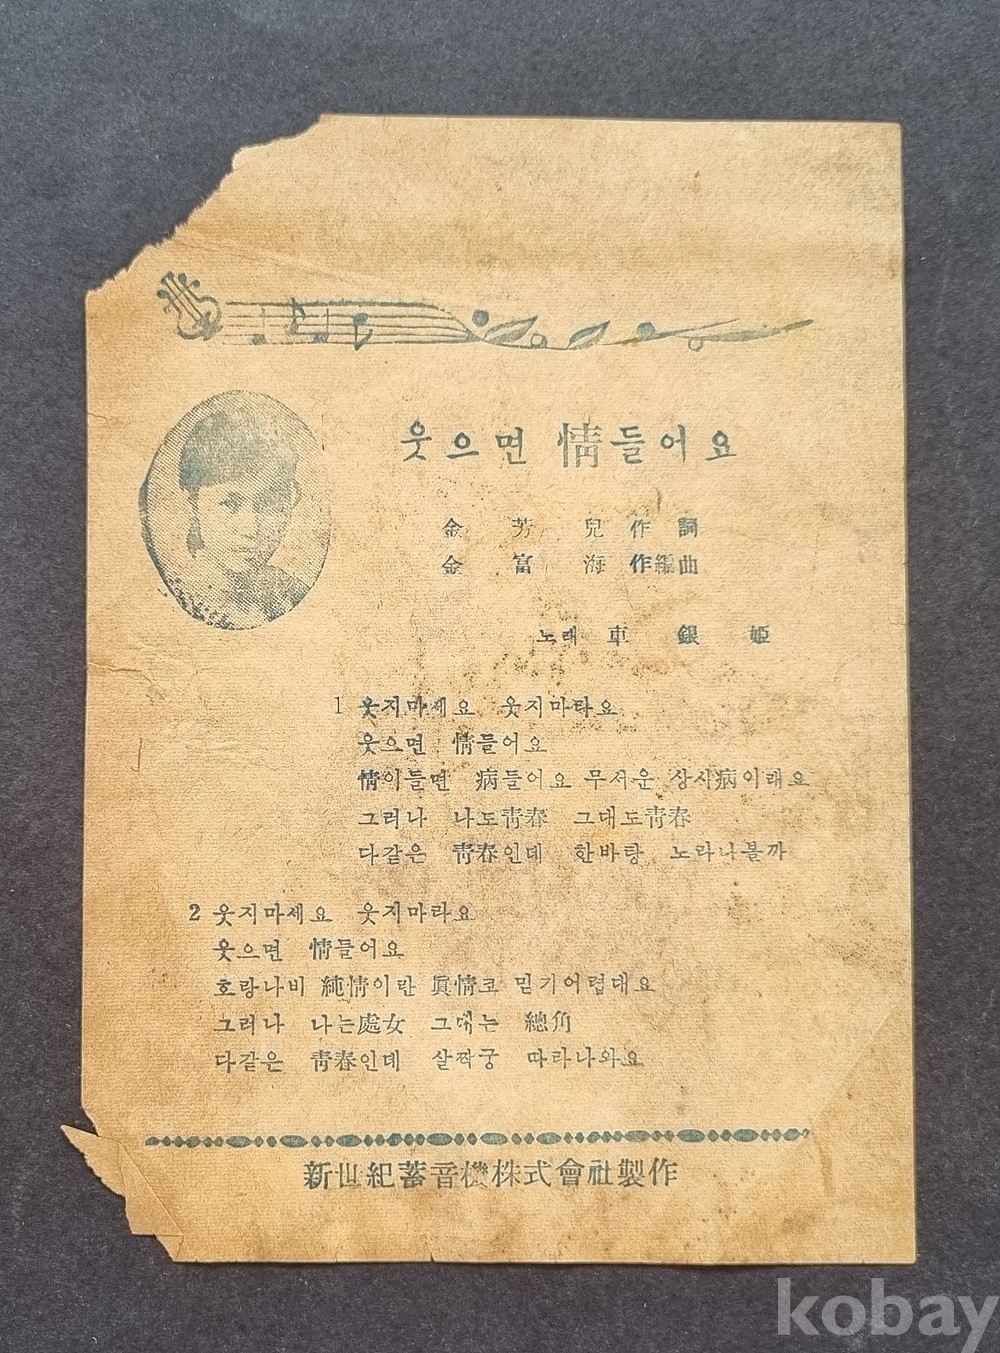 웃으면 情들어요
金 芳 兒 作 詞
金 富 海 作編曲
노래 車 銀 姬
1 웃지마세요 웃지마라요
웃으면 情들어요
情이들면 病들어요 무서운 상사病이래요
그러나 나도靑春 그대도靑春
다같은 靑春인데 한바탕 노라나볼까
2 웃지마세요 웃지마라요
웃으면 情들어요
호랑나비 純情이란 眞情코 믿기어렵대요
그러나 나는處女 그대는 總角
다같은 靑春인데 살짝궁 따라나와요
新世紀蓄音機株式會社製作
kobay